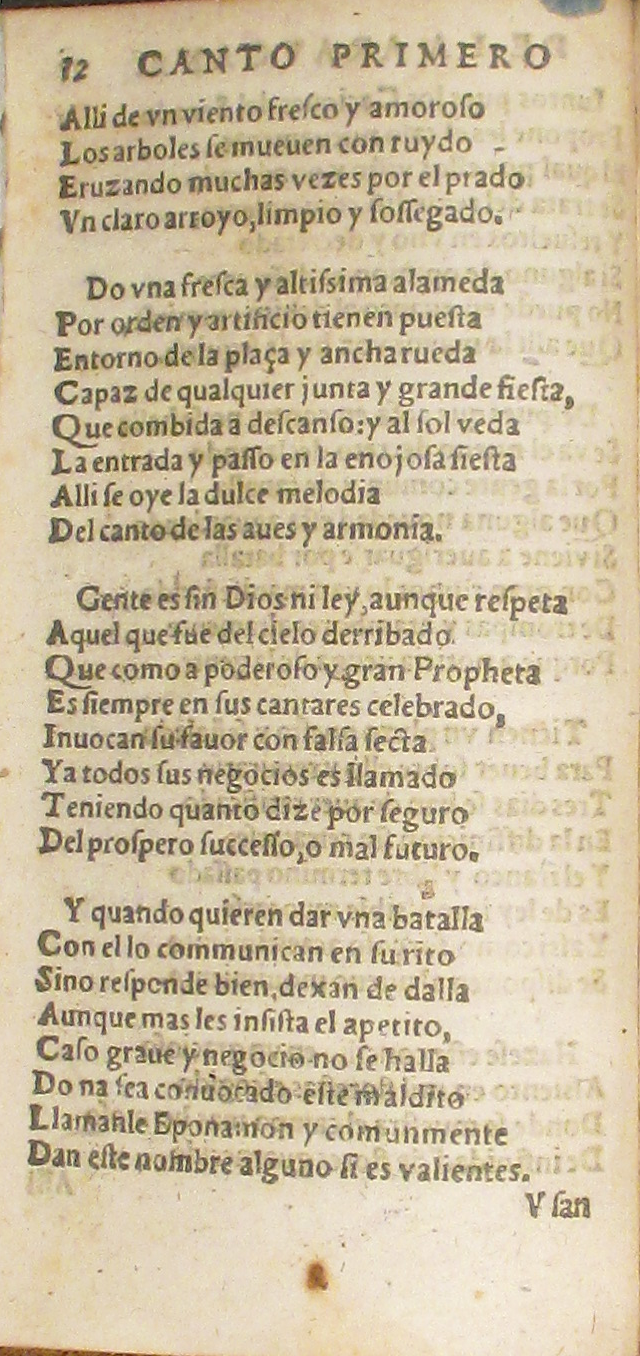 12 CANTO PRIMERO
Alli de vn viento freſco y amoroſo
Los arboles ſe mueuen con ruydo
Eruzando muchas vezes por el prado
Vn claro arroyo, limpio y ſoſſegado.
Do vna freſca y altiſsima alameda
Por orden y artificio tienen pueſta
Entorno de la plaça y ancha rueda
Capaz de qualquier junta y grande fieſta,
Que combida a deſcanſo: y al ſol veda
La entrada y paſſo en la enojoſa ſieſta
Alli ſe oye la dulce melodia
Del canto de las aues y armonia.
Gente es ſin Dios ni ley, aunque reſpeta
Aquel que fue del cielo derribado
Que como a poderoſo y gran Propheta
Es ſiempre en ſus cantares celebrado,
Inuocan ſu fauor con falſa ſecta
Ya todos ſus negocios es llamado
Teniendo quanto dize por ſeguro
Del proſpero ſucceſſo, o mal futuro.
Y quando quieren dar vna batalla
Con el lo communican en ſu rito
Sino reſponde bien, dexan de dalla
Aunque mas les inſiſta el apetito,
Caſo graue y negocio no ſe halla
Do na ſea conuocado eſte maldito
Llamanle Eponamon y comunmente
Dan eſte nombre alguno ſi es valientes.
V ſan